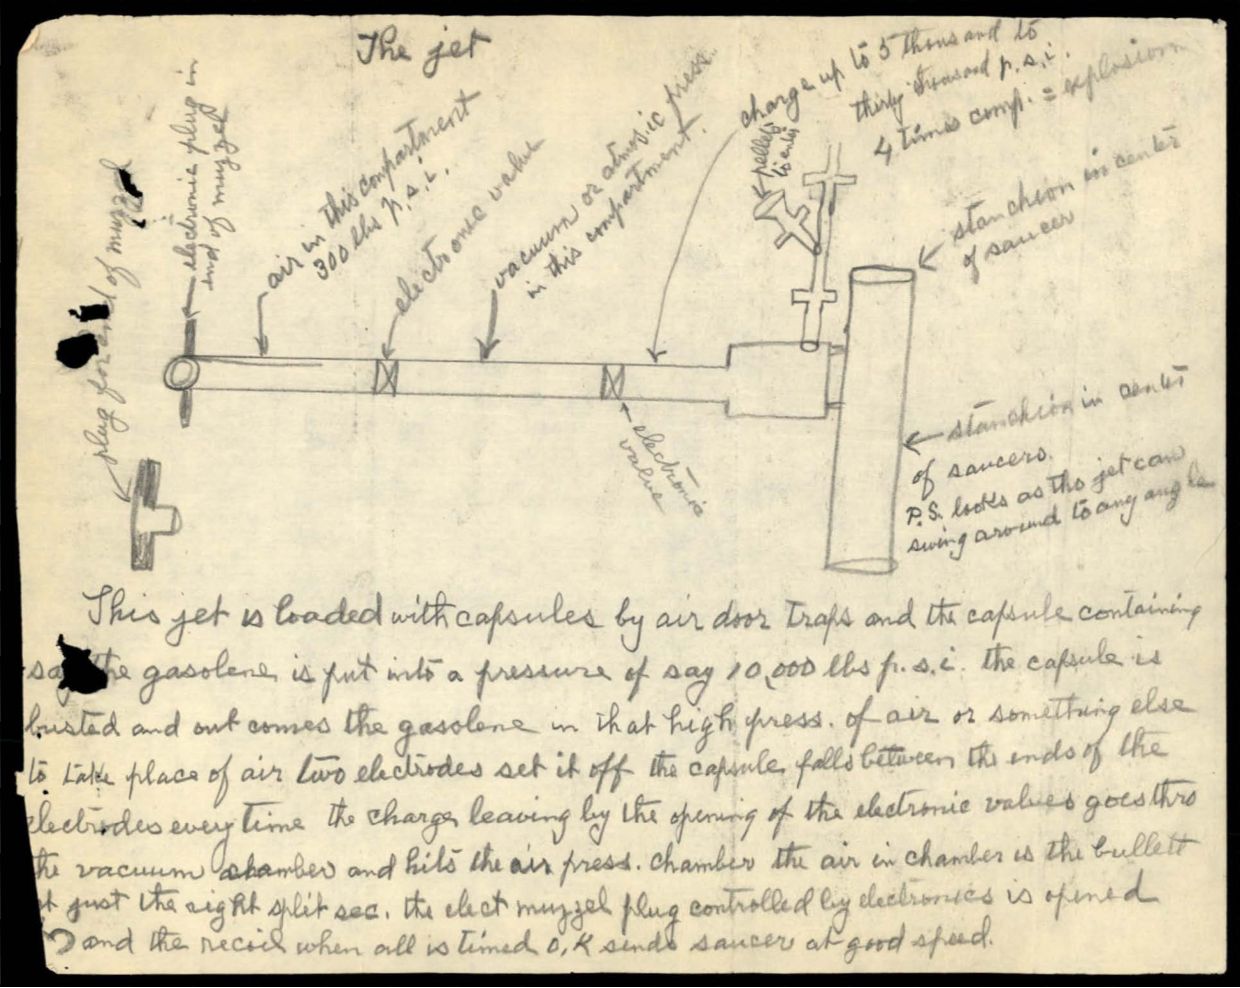 The jet
electronic plug in
end of muzzel
plug for end of muzzel
air in this compartment
300 lbs p.s.i.
electronic valve
vacuum or atmosic press.
in this compartment.
charge up to 5 thousand to
thirty thousand p.s.i.
4 times comp. = explosion
pellets
to enter
stanchion in center
of saucer
electronic
valve
stanchion in center
of saucers.
P.S. looks as tho jet can
swing around to any angle
This jet is loaded with capsules by air door traps and the capsule containing
say the gasolene is put into a pressure of say 10,000 lbs p.s.i. the capsule is
busted and out comes the gasolene in that high press. of air or something else
to take place of air two electrodes set it off the capsule falls between the ends of the
electrodes every time the charge leaving by the opening of the electronic valves goes thro
the vacuum chamber and hits the air press. chamber the air in chamber is the bullett
at just the right split sec. the elect muzzel plug controlled by electronics is opened
and the recoil when all is timed O.K sends saucer at good speed.